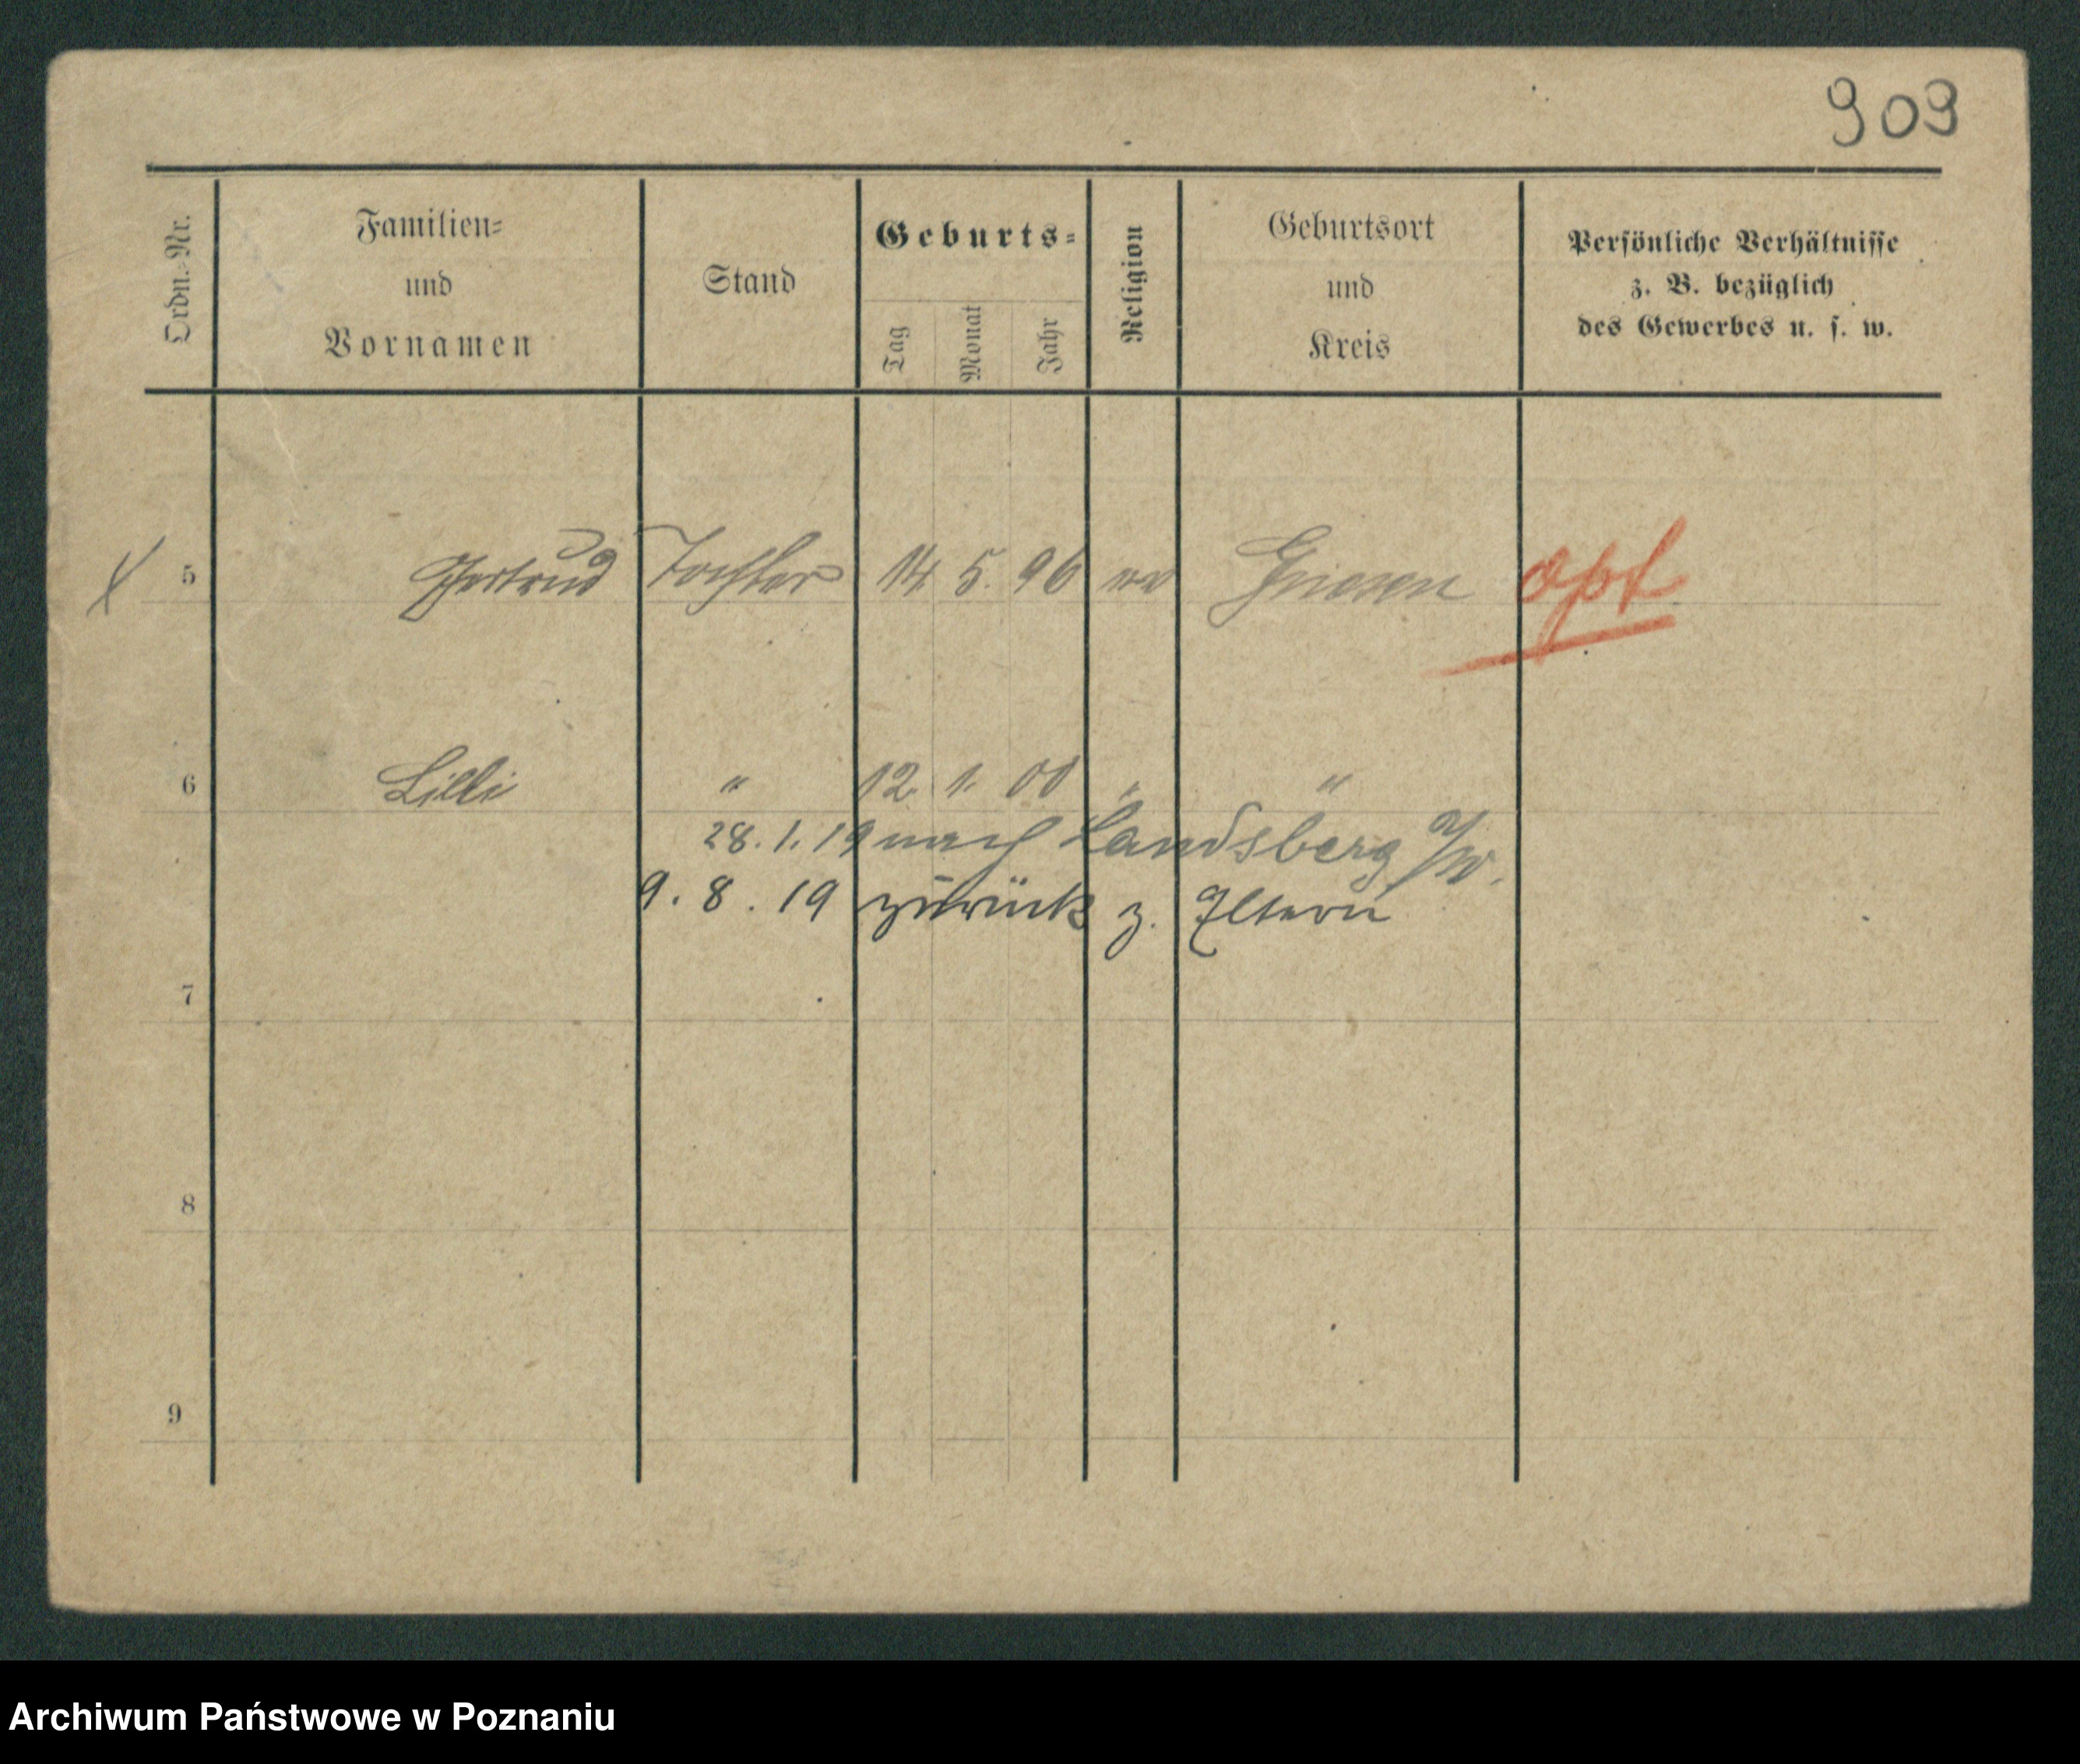 909
Ordn.-Nr.
Familien-
und
Vornamen
Stand
Geburts-
Tag
Monat
Jahr
Religion
Geburtsort
und
Kreis
Persönliche Verhältnisse
z. B. bezüglich
des Gewerbes u. s. w.
5 Gertrud Tochter 14. 5. 96 opt
6 Lilli " 12. 1. 00 " "
28. 1. 19 nach Landsberg /W.
9. 8. 19 zurück z. Eltern
7
8
9
Archiwum Państwowe w Poznaniu